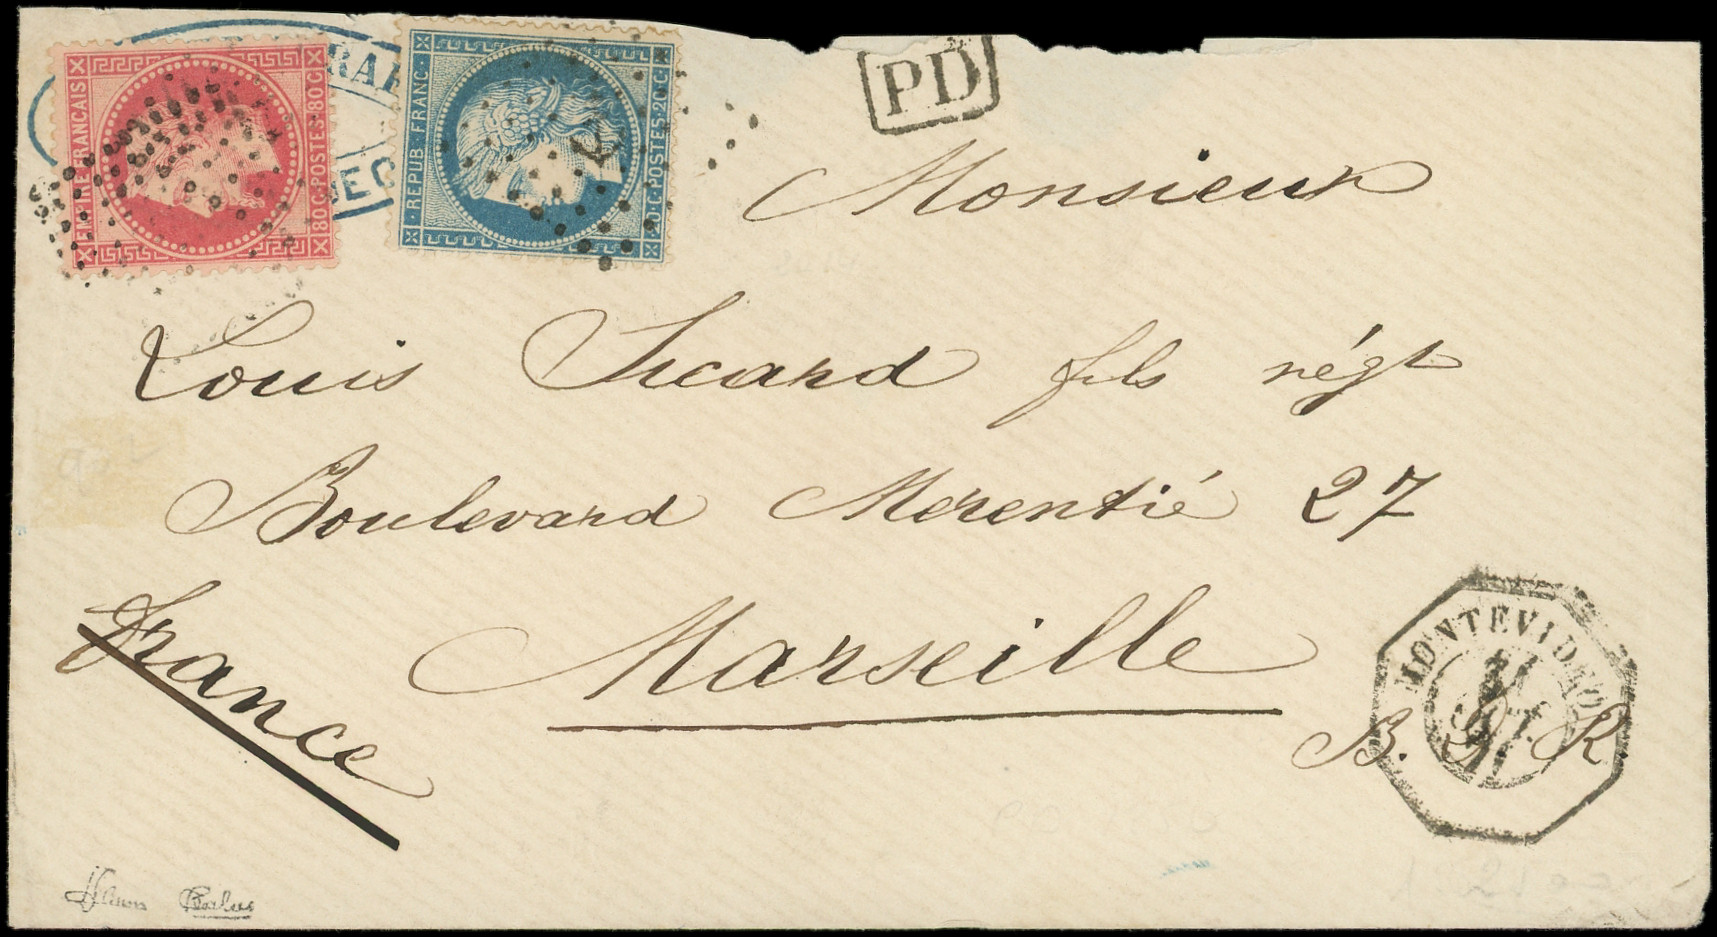 EMPIRE FRANÇAIS
80C POSTES 80C
REPUB. FRANC.
20 C. POSTES 20 C
PD
Monsieur
Louis Sicard fils négt
Boulevard Merentié 27
Marseille
France
MONTEVIDEO